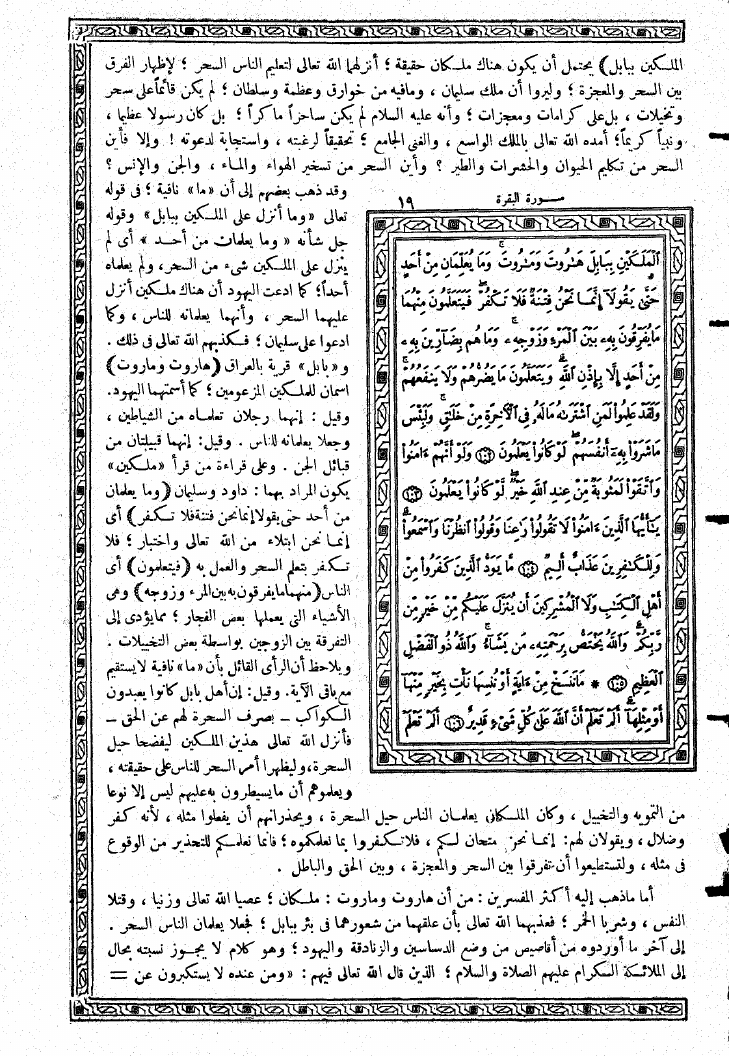 الملكين ببابل) يحتمل أن يكون هناك ملكان حقيقة؛ أنزلهما الله تعالى لتعليم الناس السحر؛ لإظهار الفرق
بين السحر والمعجزة؛ وليروا أن ملك سليمان، ومافيه من خوارق وعظمة وسلطان؛ لم يكن قائماً على سحر
وتخيلات، بل على كرامات ومعجزات؛ وأنه عليه السلام لم يكن ساحراً ماكراً؛ بل كان رسولا عظيما،
ونبياً كريماً؛ أمده الله تعالى بالملك الواسع، والغنى الجامع؛ تحقيقاً لرغبته، واستجابة لدعوته! وإلا فأين
السحر من تكليم الحيوان والحشرات والطير؟ وأين السحر من تسخير الهواء والماء، والجن والإنس؟
وقد ذهب بعضهم إلى أن «ما» نافية؛ فى قوله
تعالى «وما أنزل على الملكين ببابل» وقوله
جل شأنه «وما يعلمان من أحد» أى لم
ينزل على الملكين شىء من السحر، ولم يعلماه
أحداً؛ كما ادعت اليهود أن هناك ملكين أنزل
عليهما السحر، وأنهما يعلمانه للناس، وكما
ادعوا على سليمان؛ فكذبهم الله تعالى فى ذلك.
و«بابل» قرية بالعراق (هاروت وماروت)
اسمان للملكين المزعومين؛ كما أسمتهما اليهود.
وقيل: إنهما رجلان تعلماه من الشياطين،
وجعلا يعلمانه للناس. وقيل: إنهما قبيلتان من
قبائل الجن. وعلى قراءة من قرأ «ملكين»
يكون المراد بهما: داود وسليمان (وما يعلمان
من أحد حتى يقولا إنما نحن فتنة فلا تكفر) أى
إنما نحن ابتلاء من الله تعالى واختبار؛ فلا
تكفر بتعلم السحر والعمل به (فيتعلمون) أى
الناس (منهما مايفرقون به بين المرء وزوجه) وهى
الأشياء التى يعملها بعض الفجار؛ مما يؤدى إلى
التفرقة بين الزوجين بواسطة بعض التخييلات.
ويلاحظ أن الرأى القائل بأن «ما» نافية لا يستقيم
مع باقى الآية. وقيل: إن أهل بابل كانوا يعبدون
الكواكب – بصرف السحرة لهم عن الحق –
فأنزل الله تعالى هذين الملكين ليفضحا حيل
السحرة، وليظهرا أمر السحر للناس على حقيقته،
ويعلموهم أن ما يسيطرون به عليهم ليس إلا نوعا
سورة البقرة ١٩
ٱلْمَلَكَيْنِ بِبَابِلَ هَٰرُوتَ وَمَٰرُوتَ ۚ وَمَا يُعَلِّمَانِ مِنْ أَحَدٍ
حَتَّىٰ يَقُولَآ إِنَّمَا نَحْنُ فِتْنَةٌ فَلَا تَكْفُرْ ۖ فَيَتَعَلَّمُونَ مِنْهُمَا
مَا يُفَرِّقُونَ بِهِۦ بَيْنَ ٱلْمَرْءِ وَزَوْجِهِۦ ۚ وَمَا هُم بِضَآرِّينَ بِهِۦ
مِنْ أَحَدٍ إِلَّا بِإِذْنِ ٱللَّهِ ۚ وَيَتَعَلَّمُونَ مَا يَضُرُّهُمْ وَلَا يَنفَعُهُمْ ۚ
وَلَقَدْ عَلِمُوا۟ لَمَنِ ٱشْتَرَىٰهُ مَا لَهُۥ فِى ٱلْءَاخِرَةِ مِنْ خَلَٰقٍ ۚ وَلَبِئْسَ
مَا شَرَوْا۟ بِهِۦٓ أَنفُسَهُمْ ۚ لَوْ كَانُوا۟ يَعْلَمُونَ ١٠٢ وَلَوْ أَنَّهُمْ ءَامَنُوا۟
وَٱتَّقَوْا۟ لَمَثُوبَةٌ مِّنْ عِندِ ٱللَّهِ خَيْرٌ ۖ لَّوْ كَانُوا۟ يَعْلَمُونَ ١٠٣
يَٰٓأَيُّهَا ٱلَّذِينَ ءَامَنُوا۟ لَا تَقُولُوا۟ رَٰعِنَا وَقُولُوا۟ ٱنظُرْنَا وَٱسْمَعُوا۟ ۗ
وَلِلْكَٰفِرِينَ عَذَابٌ أَلِيمٌ ١٠٤ مَّا يَوَدُّ ٱلَّذِينَ كَفَرُوا۟ مِنْ
أَهْلِ ٱلْكِتَٰبِ وَلَا ٱلْمُشْرِكِينَ أَن يُنَزَّلَ عَلَيْكُم مِّنْ خَيْرٍ مِّن
رَّبِّكُمْ ۗ وَٱللَّهُ يَخْتَصُّ بِرَحْمَتِهِۦ مَن يَشَآءُ ۚ وَٱللَّهُ ذُو ٱلْفَضْلِ
ٱلْعَظِيمِ ١٠٥ * مَا نَنسَخْ مِنْ ءَايَةٍ أَوْ نُنسِهَا نَأْتِ بِخَيْرٍ مِّنْهَآ
أَوْ مِثْلِهَآ ۗ أَلَمْ تَعْلَمْ أَنَّ ٱللَّهَ عَلَىٰ كُلِّ شَىْءٍ قَدِيرٌ ١٠٦ أَلَمْ تَعْلَمْ
من التمويه والتخييل، وكان الملكان يعلمان الناس حيل السحرة، ويحذرانهم أن يفعلوا مثله، لأنه كفر
وضلال، ويقولان لهم: إنما نحن ممتحنان لكم، فلا تكفروا بما نعلمكموه؛ فانما نعلمكم للتحذير من الوقوع
فى مثله، ولتستطيعوا أن تفرقوا بين السحر والمعجزة، وبين الحق والباطل.
أما ماذهب إليه أكثر المفسرين: من أن هاروت وماروت: ملكان؛ عصيا الله تعالى وزنيا، وقتلا
النفس، وشربا الخمر؛ فعذبهما الله تعالى بأن علقهما من شعورهما فى بئر ببابل؛ فجعلا يعلمان الناس السحر.
إلى آخر ما أوردوه من أقاصيص من وضع الدساسين والزنادقة واليهود؛ وهو كلام لا يجوز نسبته بحال
إلى الملائكة الكرام عليهم الصلاة والسلام؛ الذين قال الله تعالى فيهم: «ومن عنده لا يستكبرون عن =